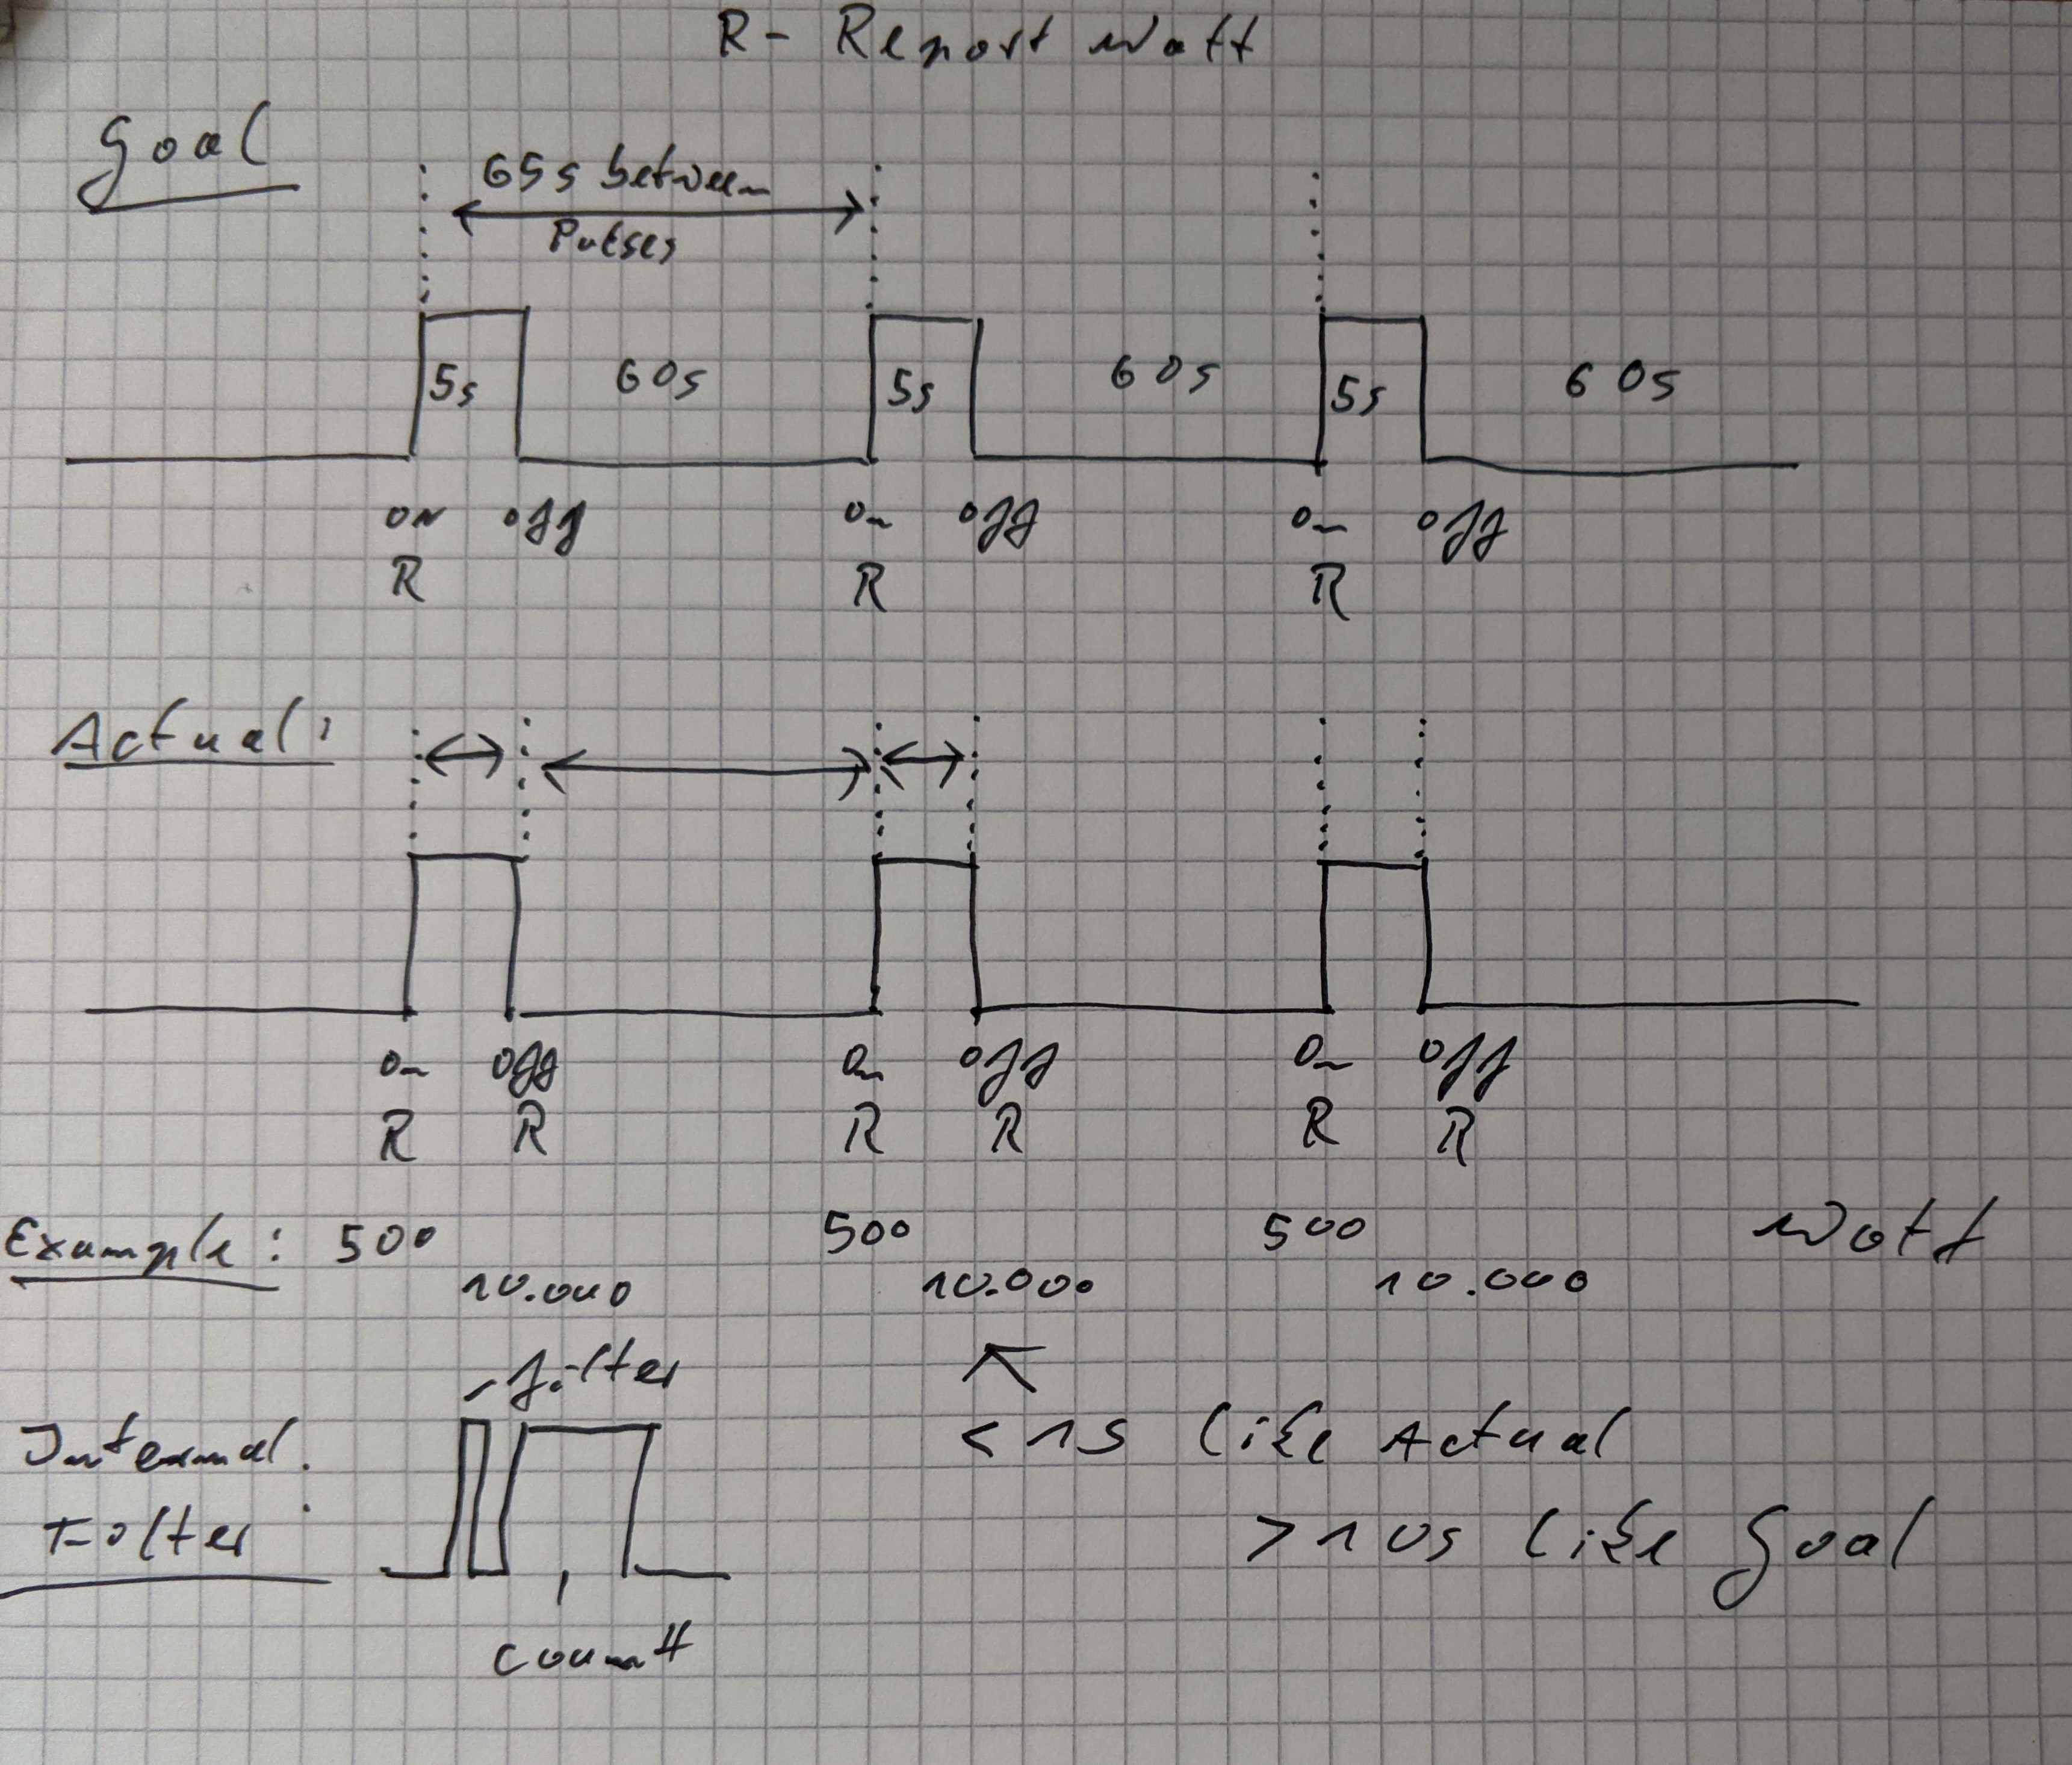 R- Report Watt
Goal
65s between
Pulses
5s 60s 5s 60s 5s 60s
on off on off on off
R R R
Actual:
on off on off on off
R R R R R R
Example: 500 500 500 Watt
10.000 10.000 10.000
filter
Internal < 1s like Actual
Filter: > 10s like Goal
count